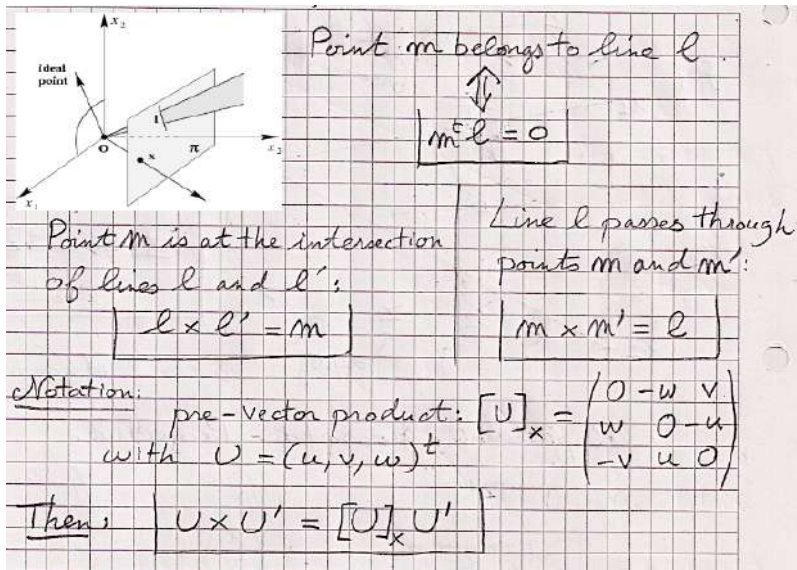 x₂
ideal
point
l
O
π
x₃
x
x₁
Point m belongs to line l
⇕
mᵗl = 0
Point m is at the intersection
of lines l and l':
l × l' = m
Line l passes through
points m and m':
m × m' = l
Notation:
pre-vector product: [U]ₓ = ( 0 -w v
w 0 -u
-v u 0 )
with U = (u, v, w)ᵗ
Then: U × U' = [U]ₓ U'